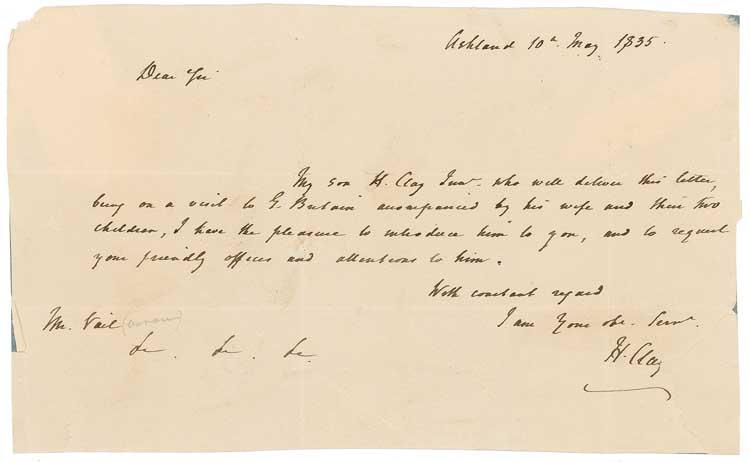 Ashland 10th. May 1835.
Dear Sir
My son H. Clay Junr. who will deliver this letter,
being on a visit to G. Britain accompanied by his wife and their two
children, I have the pleasure to introduce him to you, and to request
your friendly offices and attentions to him.
With constant regard
I am Your obt. Servt.
H. Clay
Mr. Vail
&c. &c. &c.